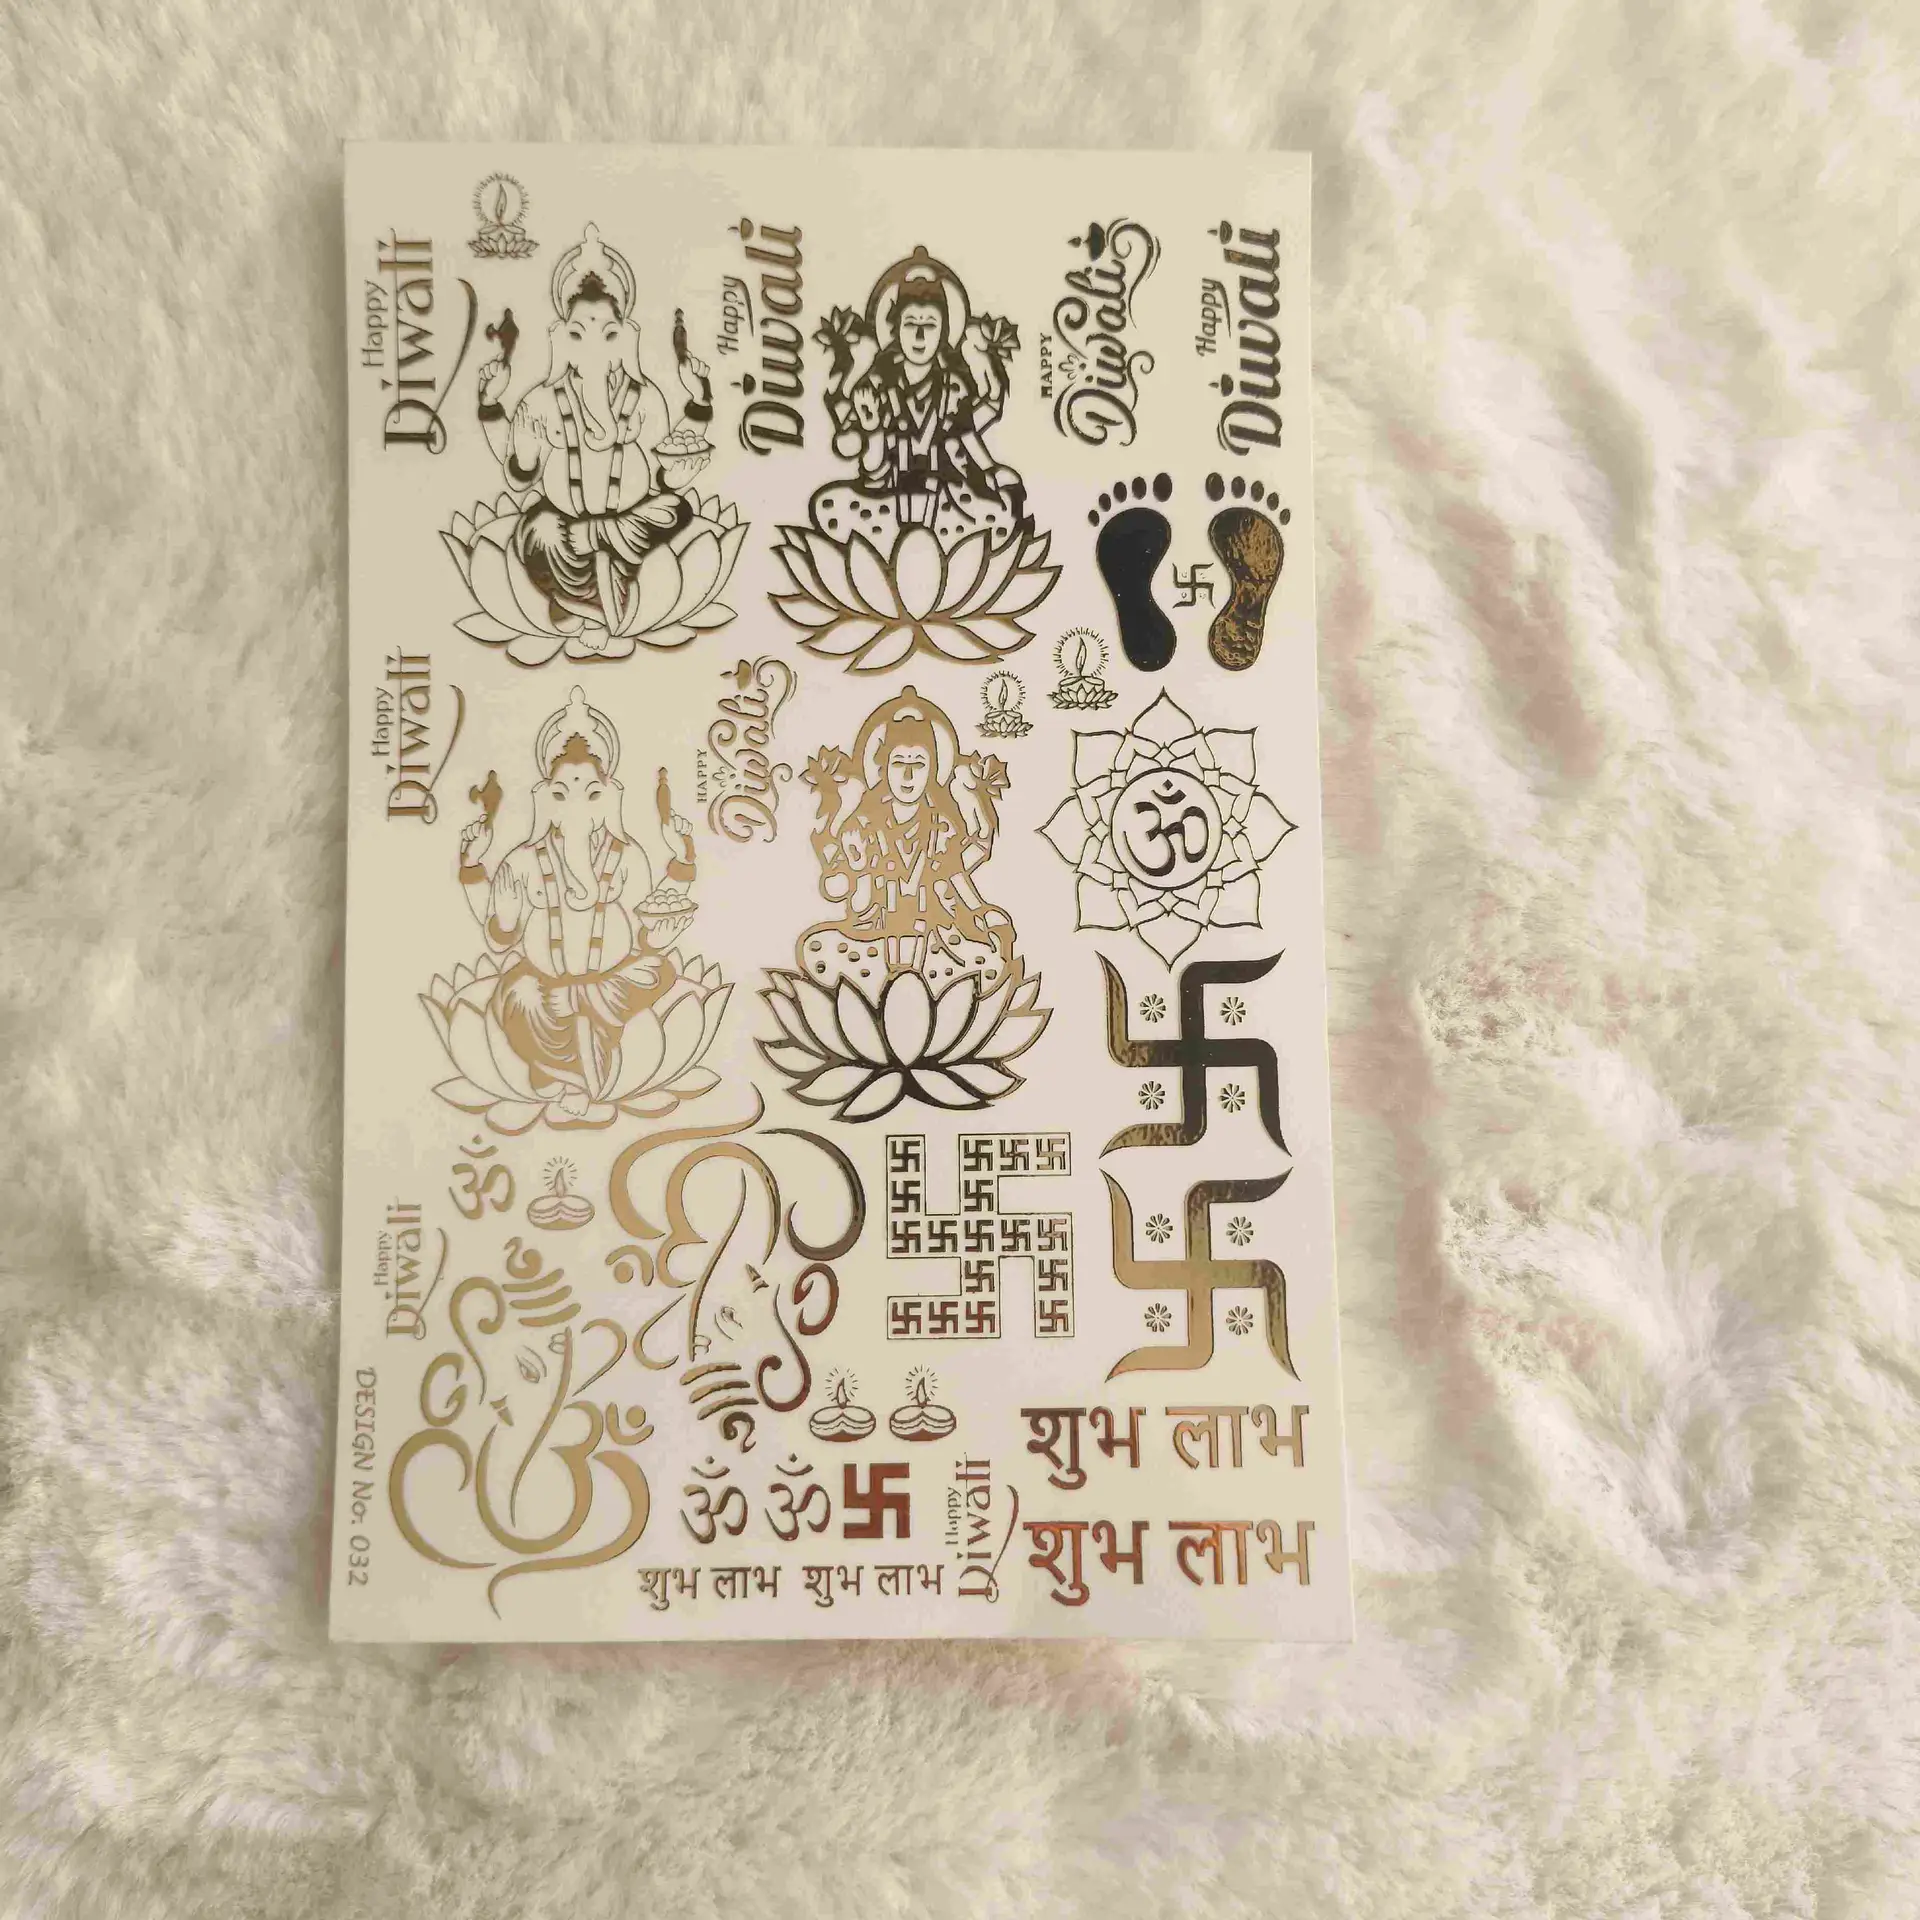 Happy
Diwali
Happy
Diwali
HAPPY
Diwali
Happy
Diwali
Happy
Diwali
HAPPY
Diwali
ॐ
ॐ
Happy
Diwali
DESIGN No. 032
ॐ
ॐ
शुभ लाभ
शुभ लाभ
Happy
Diwali
शुभ लाभ
शुभ लाभ